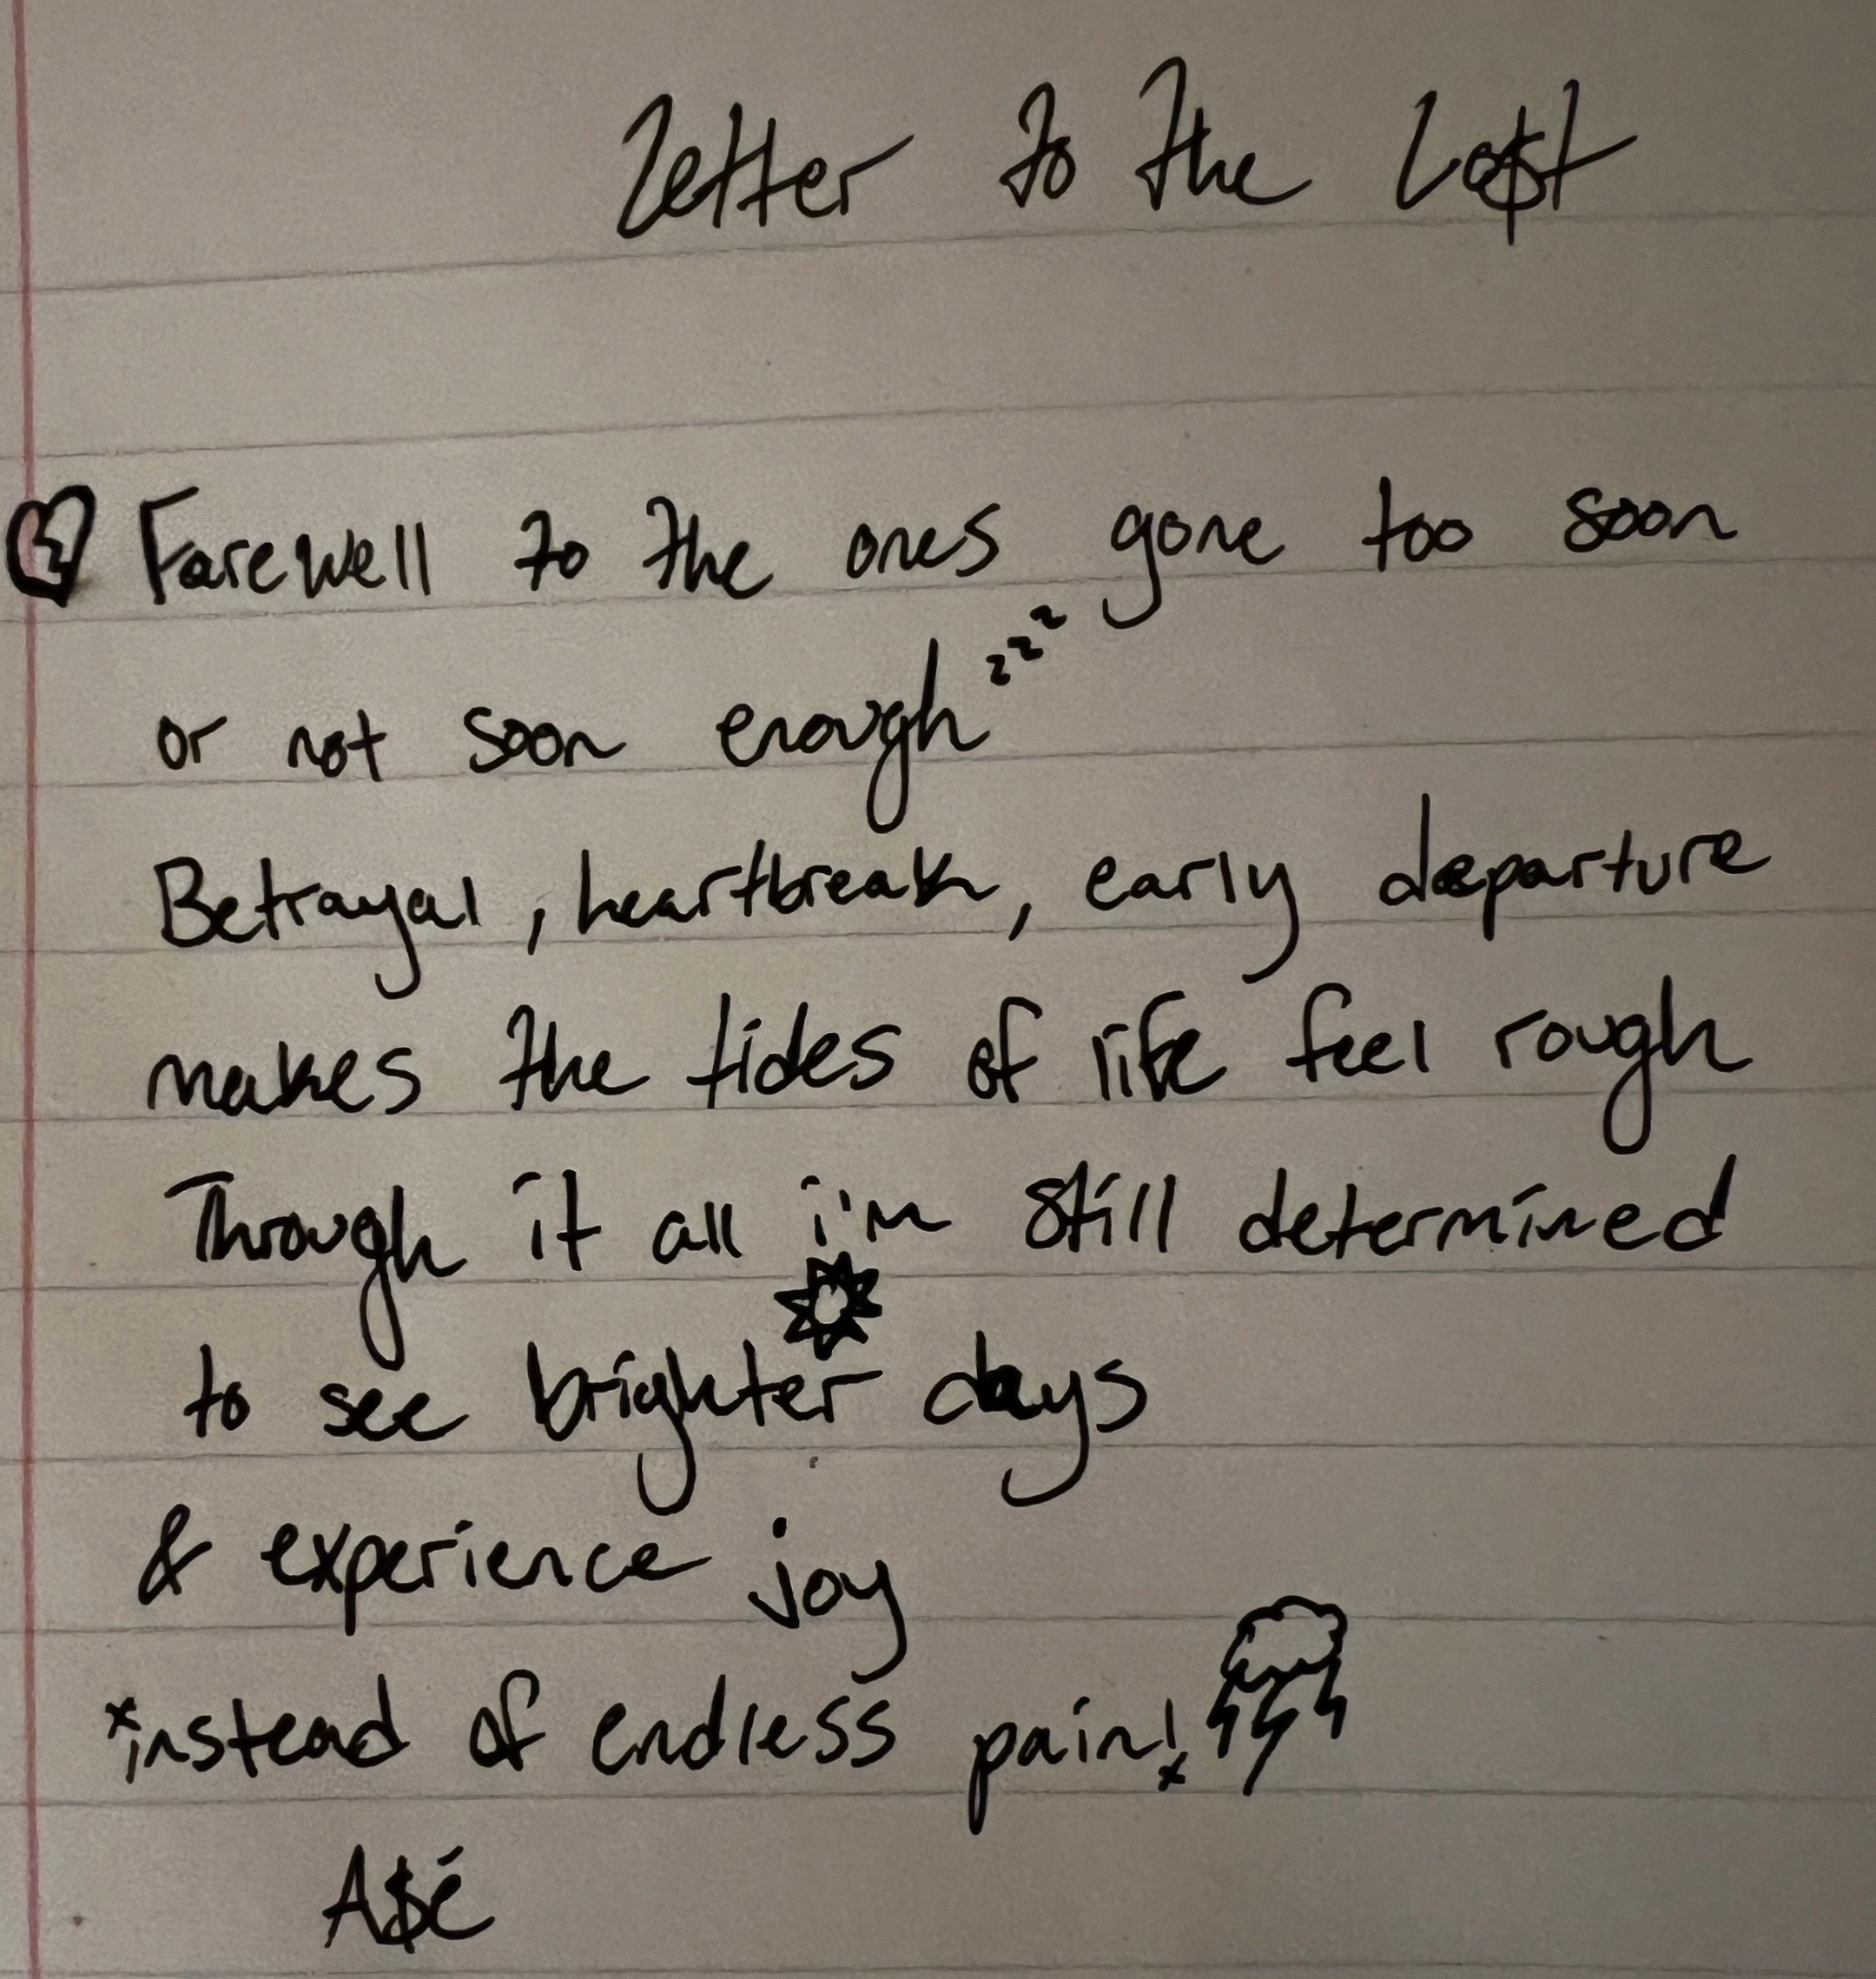 Letter to the Lo$t
Farewell to the ones gone too soon
or not soon enough zzz
Betrayal, heartbreak, early departure
makes the tides of life feel rough
Through it all i'm still determined
to see brighter days
& experience joy
*instead of endless pain!*
A$É